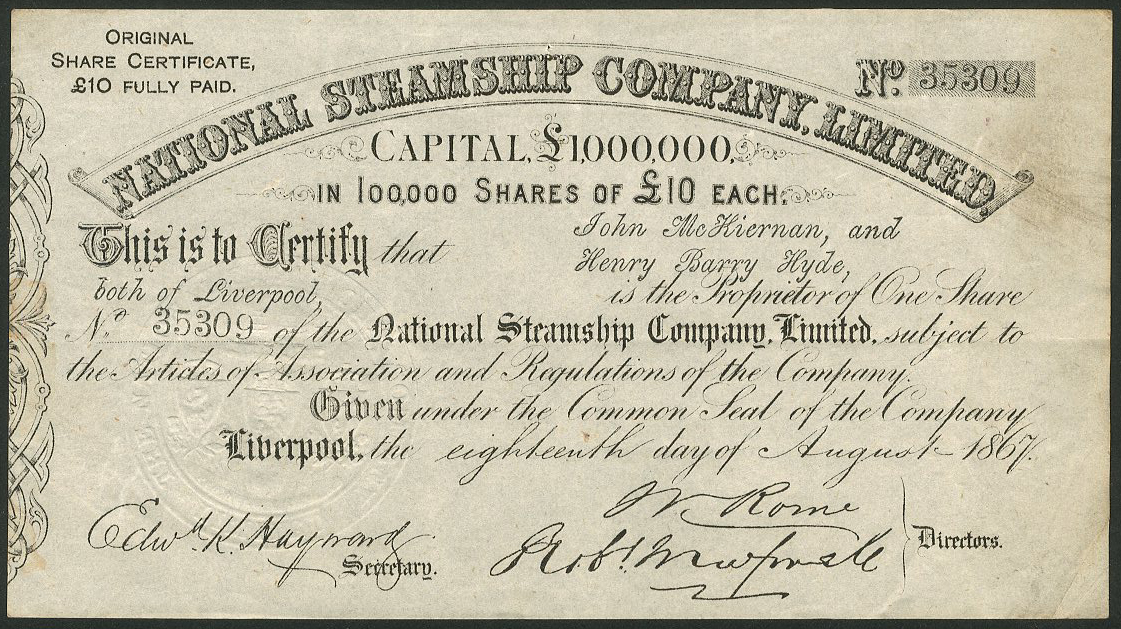 ORIGINAL
SHARE CERTIFICATE,
£10 FULLY PAID.
NATIONAL STEAMSHIP COMPANY, LIMITED.
No. 35309
CAPITAL, £1,000,000,
IN 100,000 SHARES OF £10 EACH.
This is to Certify that John McKiernan, and
Henry Barry Hyde,
both of Liverpool, is the Proprietor of One Share
No. 35309 of the National Steamship Company, Limited, subject to
the Articles of Association and Regulations of the Company.
Given under the Common Seal of the Company
Liverpool, the eighteenth day of August 1867.
W. Rome
Edwd. K. Hayward
Robt.
Directors.
Secretary.